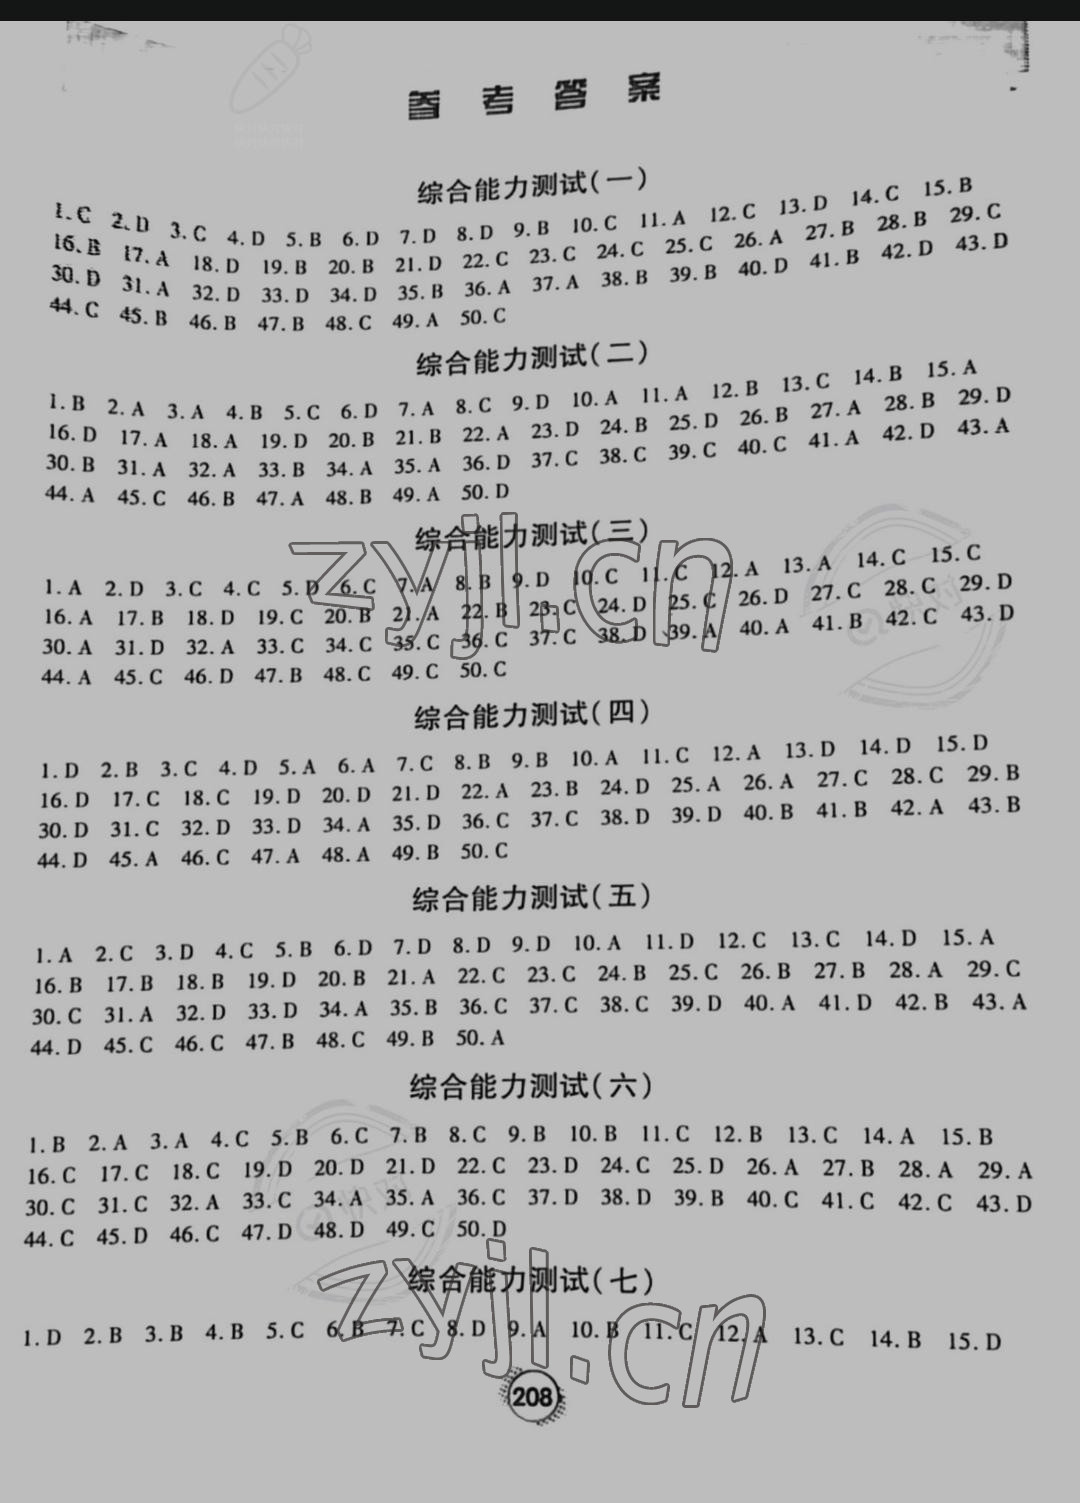 参考答案
综合能力测试(一)
1. C 2. D 3. C 4. D 5. B 6. D 7. D 8. D 9. B 10. C 11. A 12. C 13. D 14. C 15. B
16. B 17. A 18. D 19. B 20. B 21. D 22. C 23. C 24. C 25. C 26. A 27. B 28. B 29. C
30. D 31. A 32. D 33. D 34. D 35. B 36. A 37. A 38. B 39. B 40. D 41. B 42. D 43. D
44. C 45. B 46. B 47. B 48. C 49. A 50. C
综合能力测试(二)
1. B 2. A 3. A 4. B 5. C 6. D 7. A 8. C 9. D 10. A 11. A 12. B 13. C 14. B 15. A
16. D 17. A 18. A 19. D 20. B 21. B 22. A 23. D 24. B 25. D 26. B 27. A 28. B 29. D
30. B 31. A 32. A 33. B 34. A 35. A 36. D 37. C 38. C 39. C 40. C 41. A 42. D 43. A
44. A 45. C 46. B 47. A 48. B 49. A 50. D
综合能力测试(三)
1. A 2. D 3. C 4. C 5. D 6. C 7. A 8. B 9. D 10. C 11. C 12. A 13. A 14. C 15. C
16. A 17. B 18. D 19. C 20. B 21. A 22. B 23. C 24. D 25. C 26. D 27. C 28. C 29. D
30. A 31. D 32. A 33. C 34. C 35. C 36. C 37. C 38. D 39. A 40. A 41. B 42. C 43. D
44. A 45. C 46. D 47. B 48. C 49. C 50. C
zyjl.cn
快对
综合能力测试(四)
1. D 2. B 3. C 4. D 5. A 6. A 7. C 8. B 9. B 10. A 11. C 12. A 13. D 14. D 15. D
16. D 17. C 18. C 19. D 20. D 21. D 22. A 23. B 24. D 25. A 26. A 27. C 28. C 29. B
30. D 31. C 32. D 33. D 34. A 35. D 36. C 37. C 38. D 39. D 40. B 41. B 42. A 43. B
44. D 45. A 46. C 47. A 48. A 49. B 50. C
综合能力测试(五)
1. A 2. C 3. D 4. C 5. B 6. D 7. D 8. D 9. D 10. A 11. D 12. C 13. C 14. D 15. A
16. B 17. B 18. B 19. D 20. B 21. A 22. C 23. C 24. B 25. C 26. B 27. B 28. A 29. C
30. C 31. A 32. D 33. D 34. A 35. B 36. C 37. C 38. C 39. D 40. A 41. D 42. B 43. A
44. D 45. C 46. C 47. B 48. C 49. B 50. A
综合能力测试(六)
1. B 2. A 3. A 4. C 5. B 6. C 7. B 8. C 9. B 10. B 11. C 12. B 13. C 14. A 15. B
16. C 17. C 18. C 19. D 20. D 21. D 22. C 23. D 24. C 25. D 26. A 27. B 28. A 29. A
30. C 31. C 32. A 33. C 34. A 35. A 36. C 37. D 38. D 39. B 40. C 41. C 42. C 43. D
44. C 45. D 46. C 47. D 48. D 49. C 50. D
快对
综合能力测试(七)
1. D 2. B 3. B 4. B 5. C 6. B 7. C 8. D 9. A 10. B 11. C 12. A 13. C 14. B 15. D
zyjl.cn
208